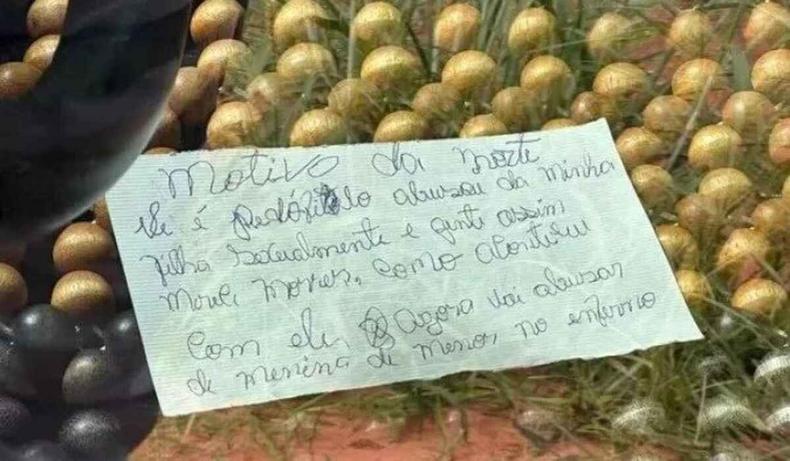 Motivo da morte
ele é pedófilo abusou da minha
filha sexualmente e gente assim
morre, como aconteceu
com ele, Agora vai abusar
de menina de menor no inferno